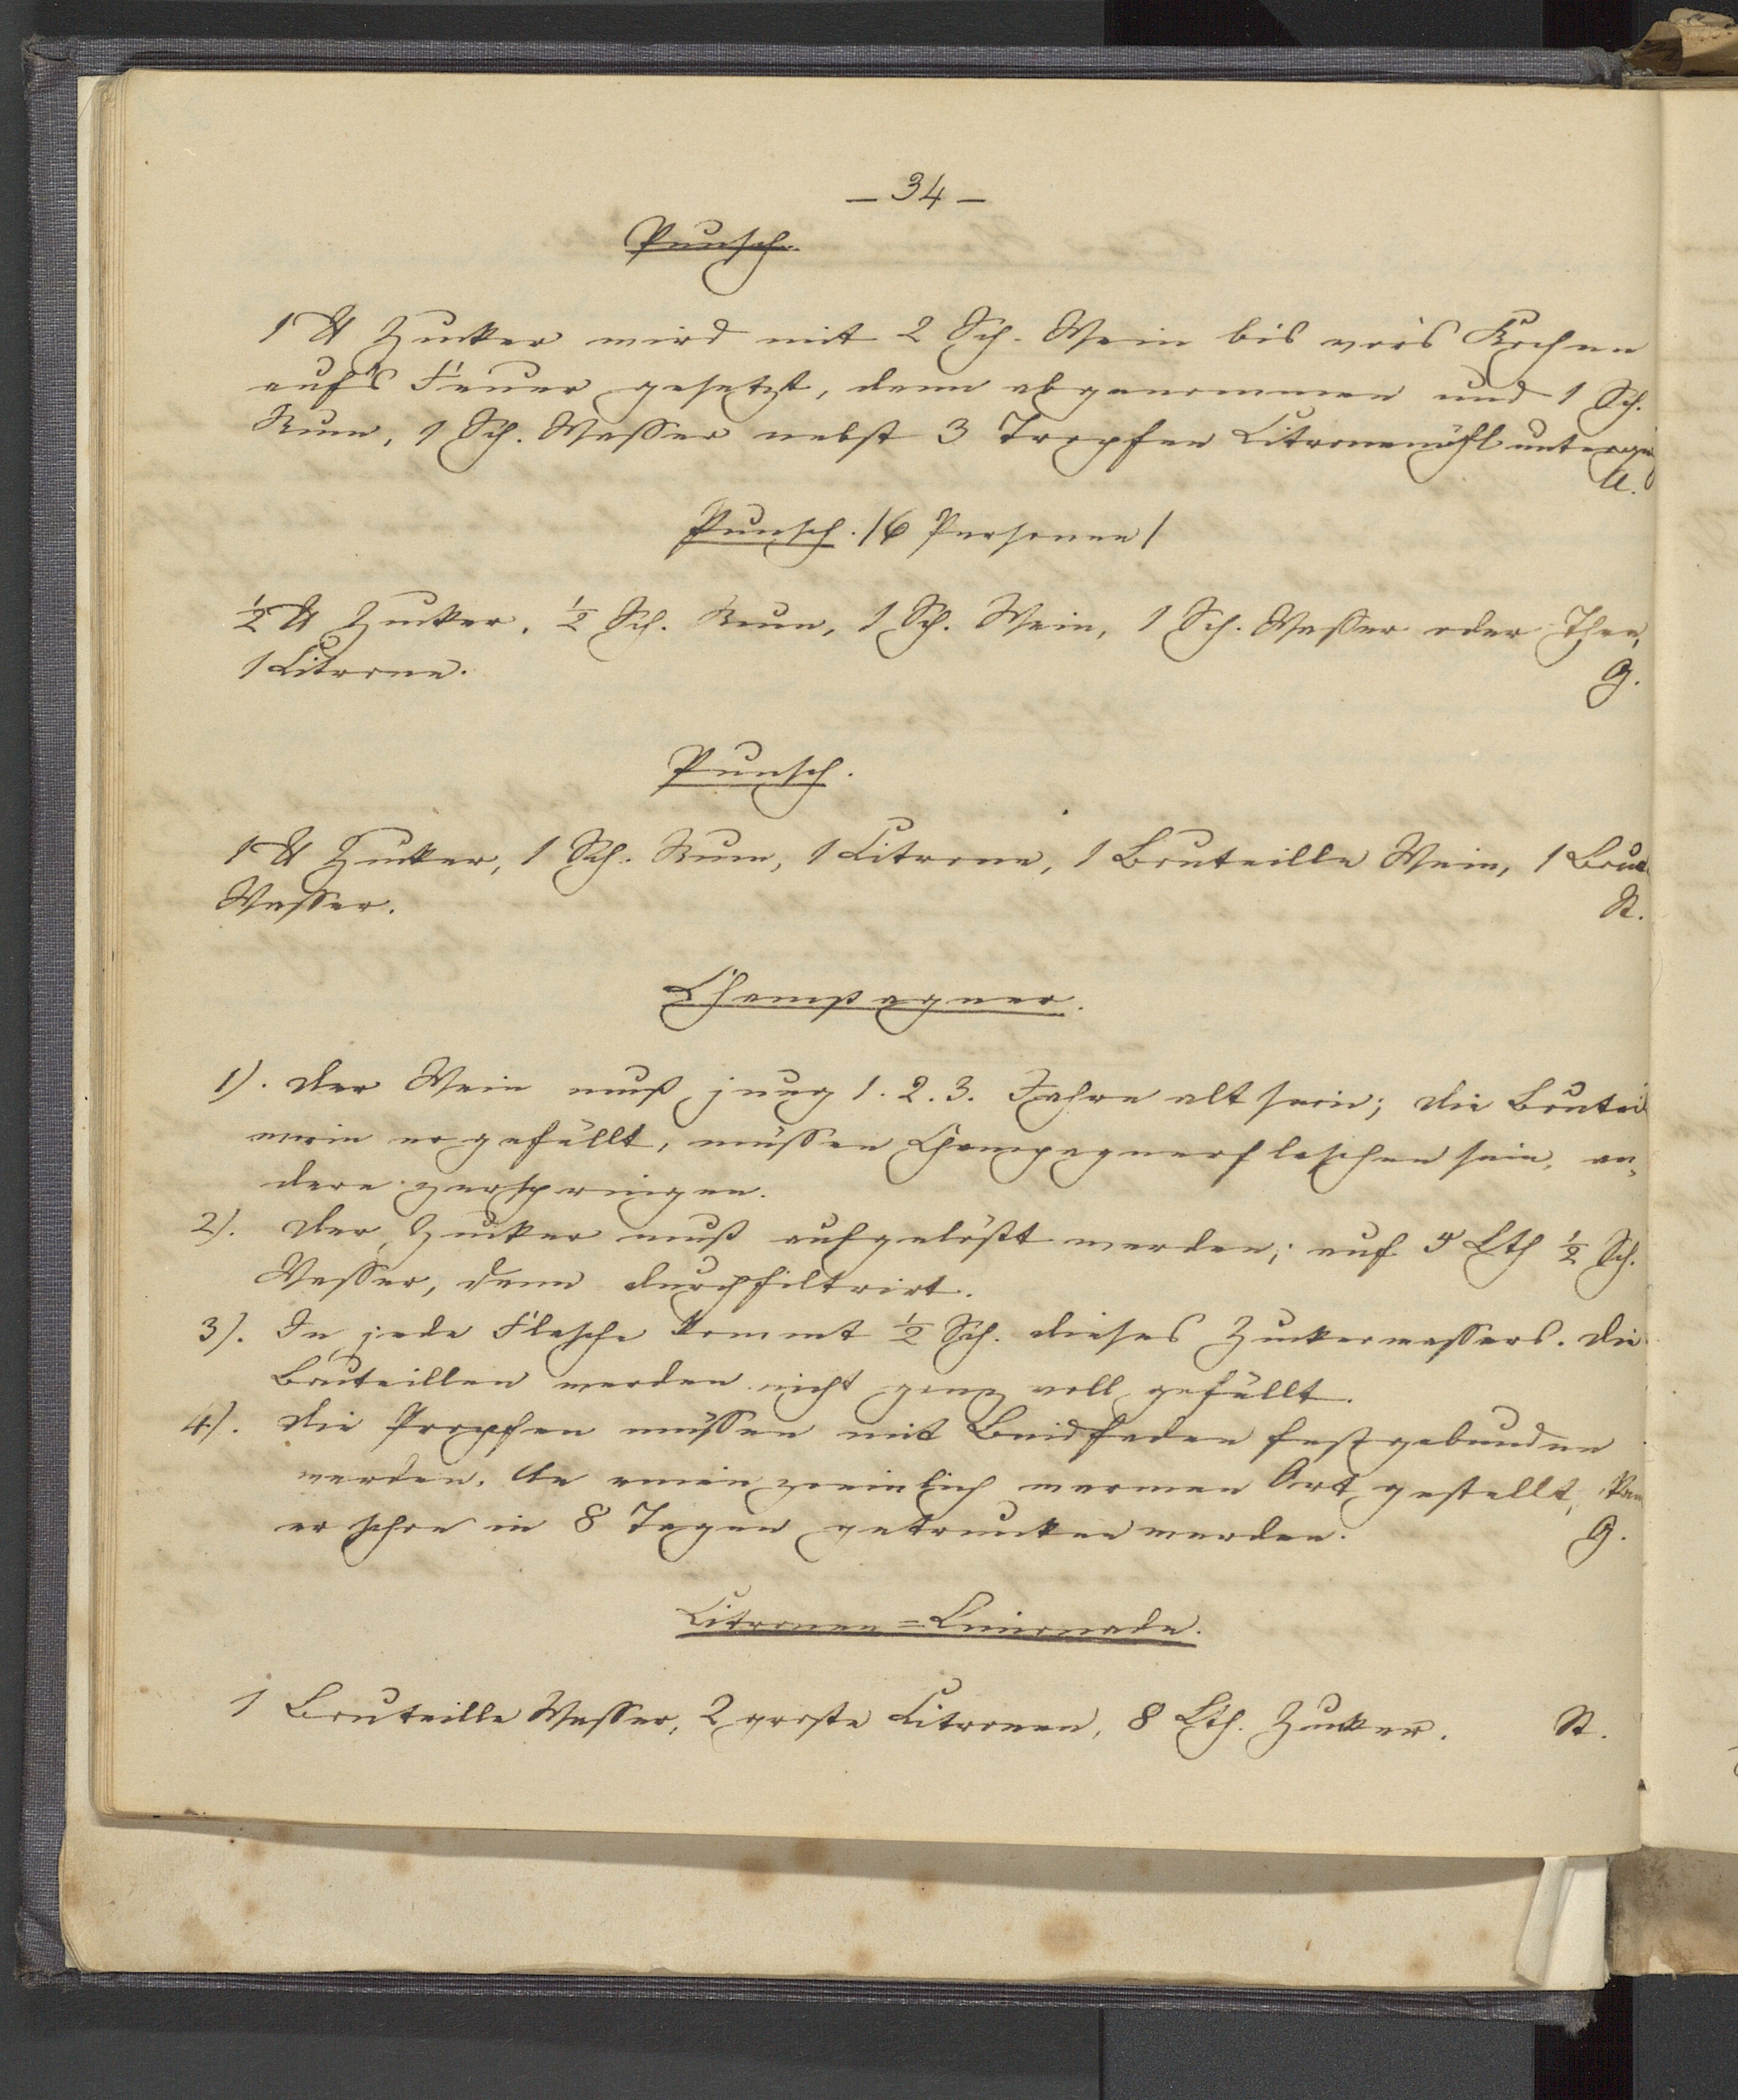 — 34 —
Punsch.
1 ℔ Zucker wird mit 2 Sch. Wein bis vor's Kochen
auf's Feuer gesetzt, dann abgenommen und 1 Sch.
Rum, 1 Sch. Wasser nebst 3 Tropfen Citronenöhl
U.
Punsch. /6 Personen/
½ ℔ Zucker, ½ Sch. Rum, 1 Sch. Wein, 1 Sch. Wasser oder Thee,
1 Citrone. G.
Punsch.
1 ℔ Zucker, 1 Sch. Rum, 1 Citrone, 1 Bouteille Wein, 1 Bout
Wasser. St.
Champagner.
1). Der Wein muß jung 1. 2. 3. Jahre alt sein; die Boutei
worin er gefüllt, müssen Champagnerflaschen sein, an-
dere zerspringen.
2). Der Zucker muß aufgelößt werden; auf 5 Lth ½ Sch.
Wasser, dann durchfiltrirt.
3). In jede Flasche kommt ½ Sch. dieses Zuckerwassers. Die
Bouteillen werden nicht ganz voll gefüllt.
4). Die Propfen müssen mit Bindfaden festgebunden
werden. An einen ziemlich warmen Ort gestellt, kan
er schon in 8 Tagen getrunken werden. G.
Citronen=Limonade.
1 Bouteille Wasser, 2 große Citronen, 8 Lth. Zucker. St.